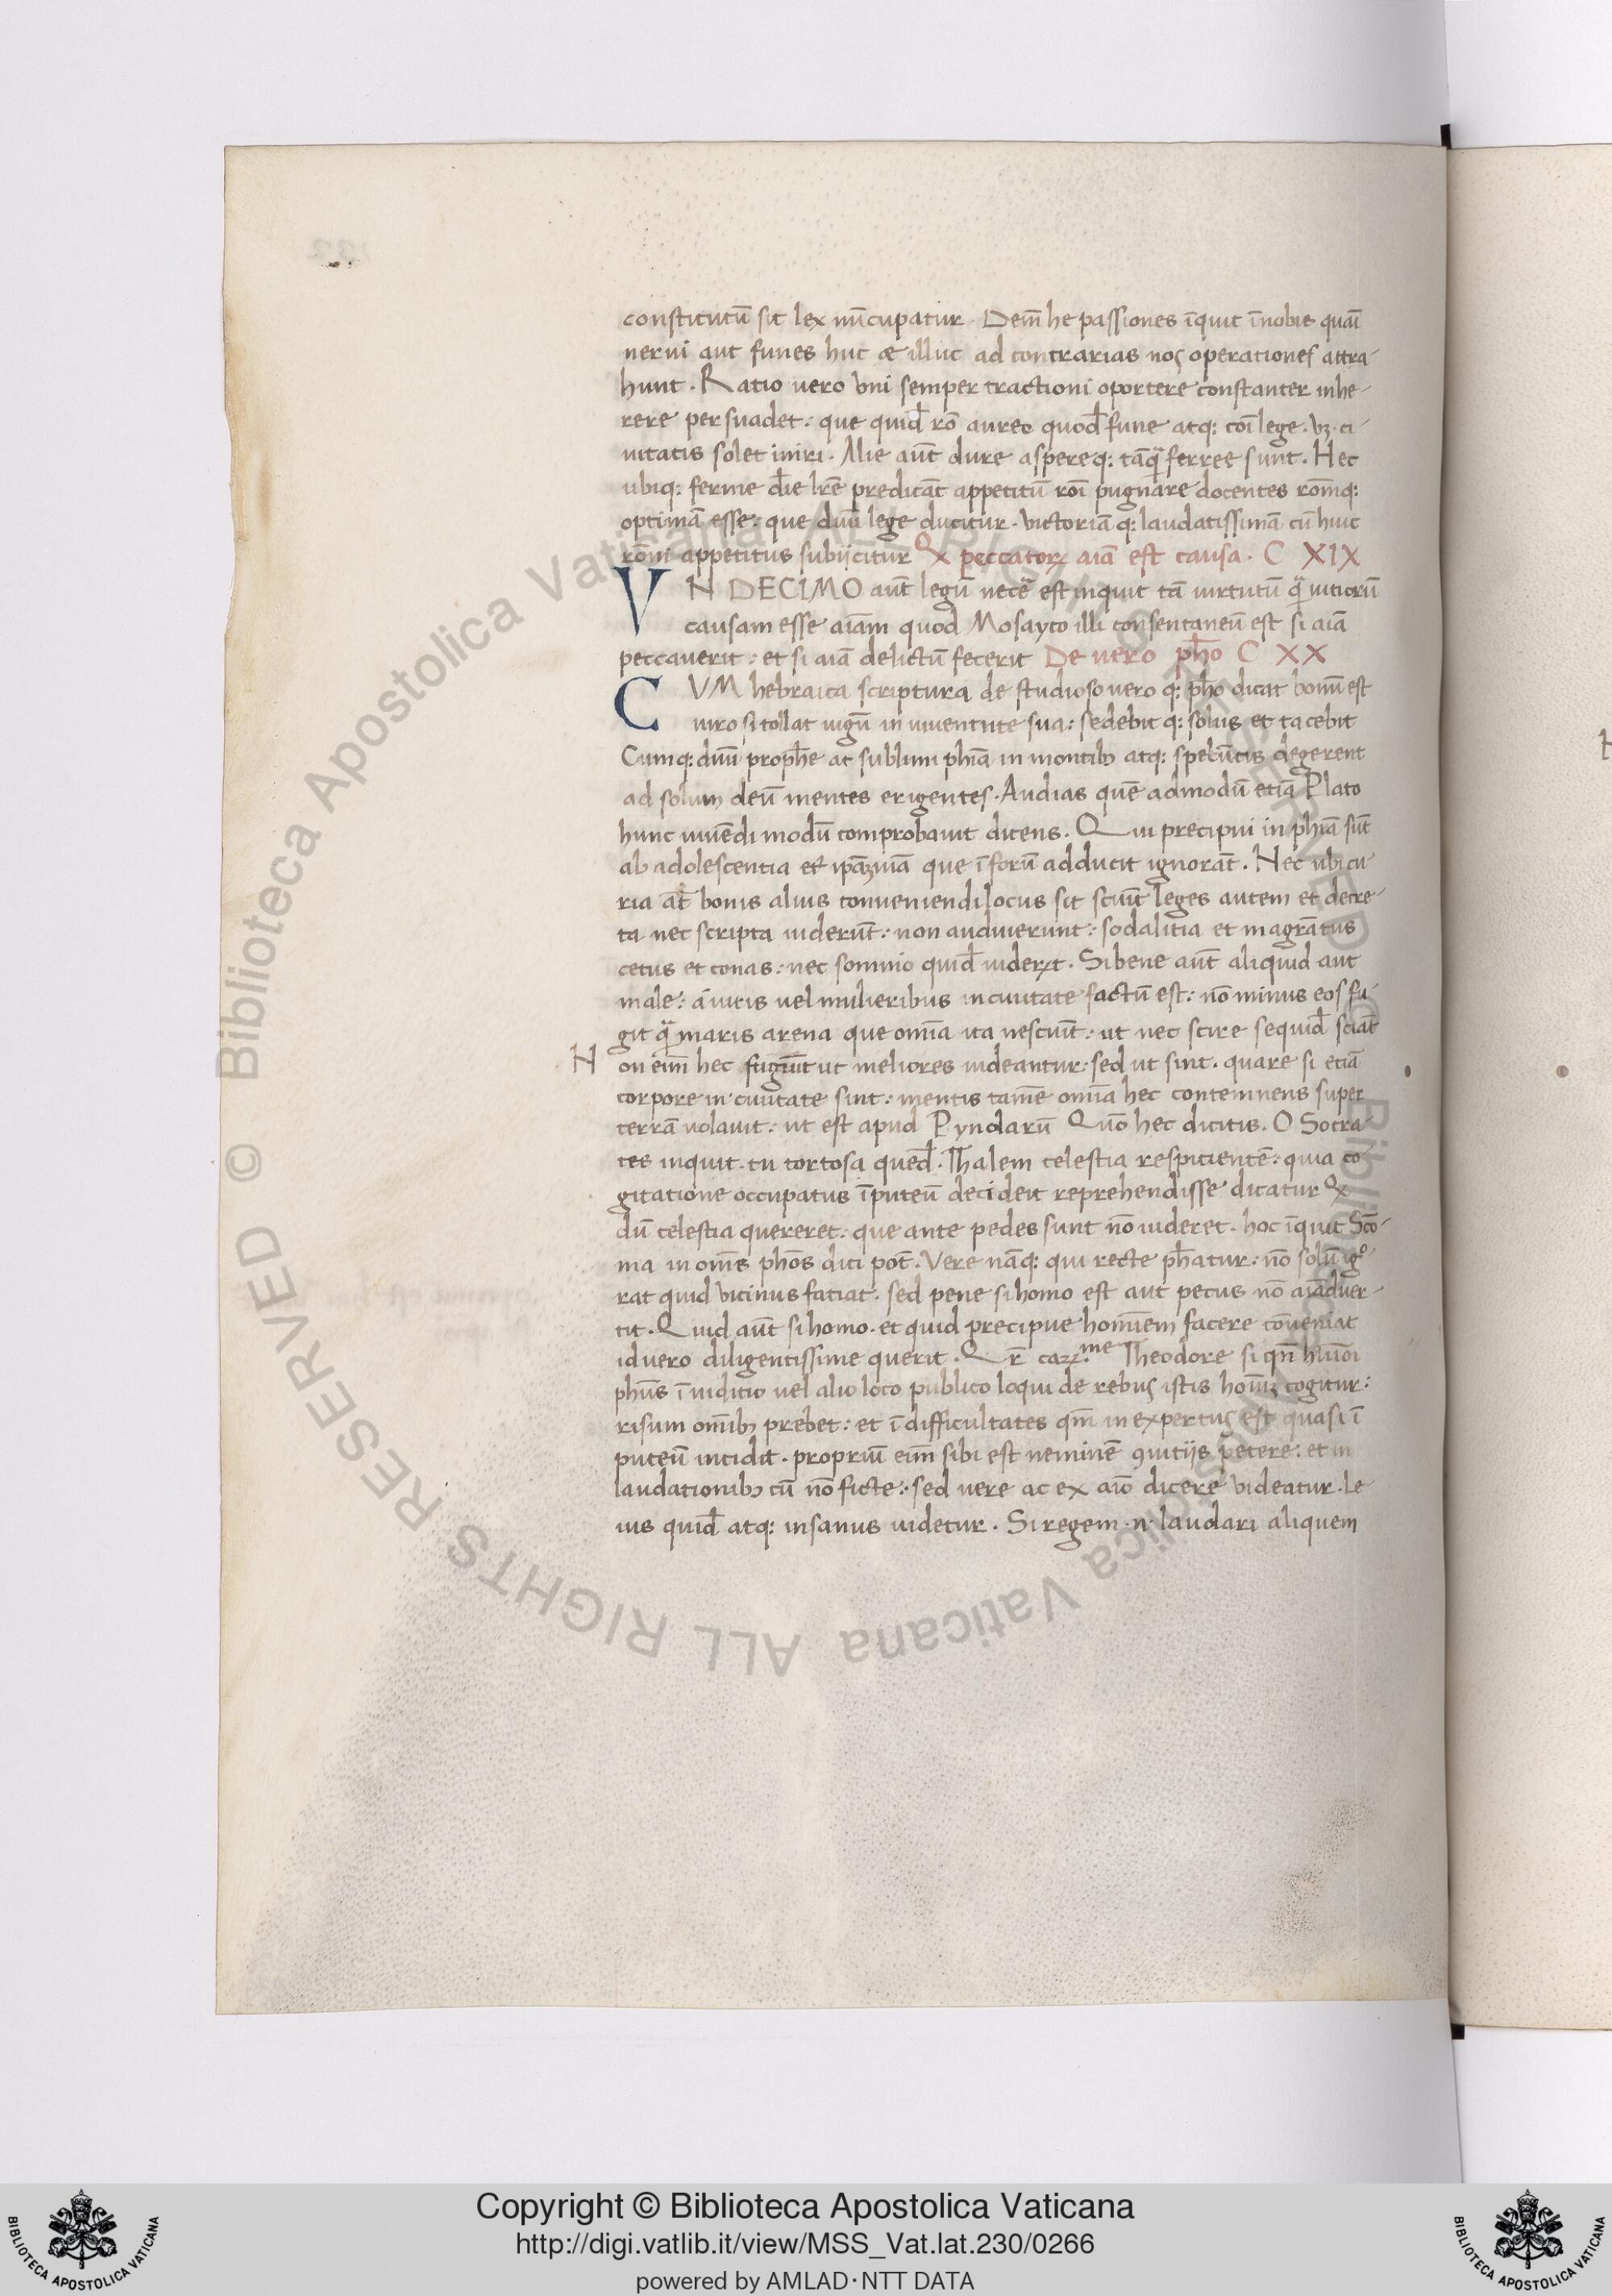 constitutū sit lex nūcupatur. Dem̄ he passiones īquit ī nobis quāi
nerui aut funes huc ac illuc ad contrarias nos operationes attra-
hunt. Ratio uero uni semper tractioni oportere constanter inhe-
rere persuadet: que quid̄ rō aureo quod̄ fune atq: coī lege. uz. ci-
uitatis solet iniri. Alie aūt dure aspereq: tāq̄ ferree sunt. Hec
ubiq: ferme d̄ie lr̄e predicāt appetitū roī pugnare docentes rōmq:
optimā esse: que duū lege ducitur. uictoriā q: laudatissimā cū huic
rōni appetitus subijcitur Qx peccatorꝝ aiā est causa. C XIX
VN DECIMO aūt legū necē est inquit tā uirtutū q̄ uitiorū
causam esse aīam quod Mosayco illi consentaneū est si aiā
peccauerit: et si aiā delictū fecerit De uero ph̄o C XX
CVM hebraica scriptura de studioso uero q: ph̄o dicat bonū est
uiro si tollat iugū in iuuentute sua: sedebit q: solus et tacebit
Cumq: duū proph̄e ac sublimi phīa in montibꝫ atq: spelūcis degerent
ad solum deū mentes erigentes. Audias quē admodū etiā Plato
hunc uiuēdi modū comprobauit dicens. Qui precipui in phīa sūt
ab adolescentia et ipāꝫ uiā que ī forū adducit ignorāt. Nec ubi cu
ria āt bonis aliis conueniendi locus sit sciūt leges autem et decre-
ta nec scripta uiderūt: non audiuerunt: sodalitia et magrātus
cetus et conas: nec somnio quid̄ uiderꝝt. Si bene aūt aliquid aut
male: a uiris uel mulieribus in ciuitate factū est: nō minus eos fu-
git q̄ maris arena que omīa ita nesciūt: ut nec scire se quid̄ sciāt
N on eīm hec fugiūt ut meliores uideantur: sed ut sint. quare si etiā
corpore in ciuitate sint: mentis tamē omīa hec contemnens super
terrā uolauit: ut est apud Pyndarū Quō hec dicitis. O Socra
tes inquit. tu tortosa qued̄. Thalem celestia respicientē: quia co
gitatione occupatus ī puteū decideit reprehendisse dicatur Qx
dū celestia quereret: que ante pedes sunt nō uideret. hoc īquit Scō-
ma in omīs phōs dici pōt. Vere nāq: qui recte ph̄atur: nō solū igº-
rat quid uicinus faciat. sed pene si homo est aut pecus nō aīaduer-
tit. Quid aūt si homo. et quid precipue homīem facere cōueniat
id uero diligentissime querit. Qr̄ carꝝ.me Theodore si qn̄ hīuōi
phūs ī iuditio uel alio loco publico loqui de rebus istis homīꝫ cogitur:
risum omībꝫ prebet: et ī difficultates qm̄ in expertus est quasi ī
puteū incidit. propriū eīm sibi est neminē ꝯuitijs petere: et in
laudationibꝫ cū nō ficte: sed uere ac ex aīo dicere uideatur. le
uis quid̄ atq: insanus uidetur. Si regem .n. laudari aliquem
Copyright © Biblioteca Apostolica Vaticana
http://digi.vatlib.it/view/MSS_Vat.lat.230/0266
powered by AMLAD·NTT DATA
BIBLIOTECA APOSTOLICA VATICANA
BIBLIOTECA APOSTOLICA VATICANA
© Biblioteca Apostolica Vaticana ALL RIGHTS RESERVED